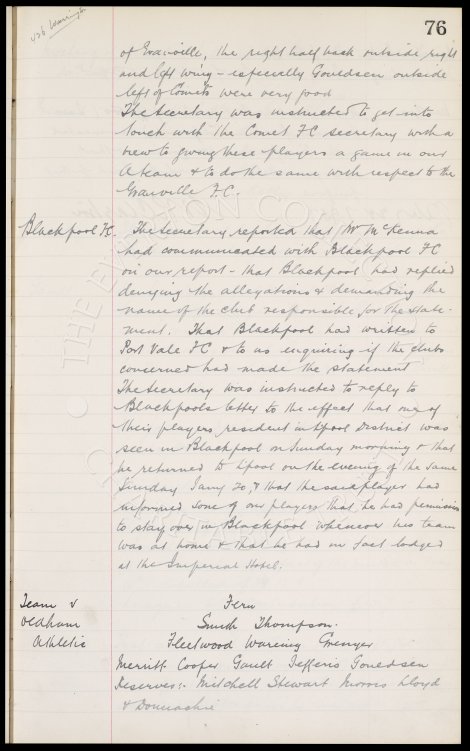 76
426 Warrington
of Granville, the right half back outside right
and left wing - especially Gouldsen outside
left of Comets were very good
The Secretary was instructed to get into
touch with the Comet FC secretary with a
view to giving these players a game in our
A team & to do the same with respect to the
Granville F.C.
Blackpool FC. The Secretary reported that Mr McKenna
had communicated with Blackpool FC
on our report - that Blackpool had replied
denying the allegations & demanding the
name of the club responsible for the state-
ment. That Blackpool had written to
Port Vale FC & to us enquiring if the clubs
concerned had made the statement
The Secretary was instructed to reply to
Blackpools letter to the effect that one of
their players resident in Lpool District was
seen in Blackpool on Sunday morning & that
he returned to Lpool on the evening of the same
Sunday Jany 20, & that the said player had
informed some of our players that he had permission
to stay over in Blackpool whenever his team
was at home & that he had in fact lodged
at the Imperial Hotel.
Team v Fern
Oldham Smith Thompson.
Athletic Fleetwood Wareing Grenyer
Merritt Cooper Gault Jefferis Gouedsen
Reserves:- Mitchell Stewart Morris Lloyd
& Donnachie